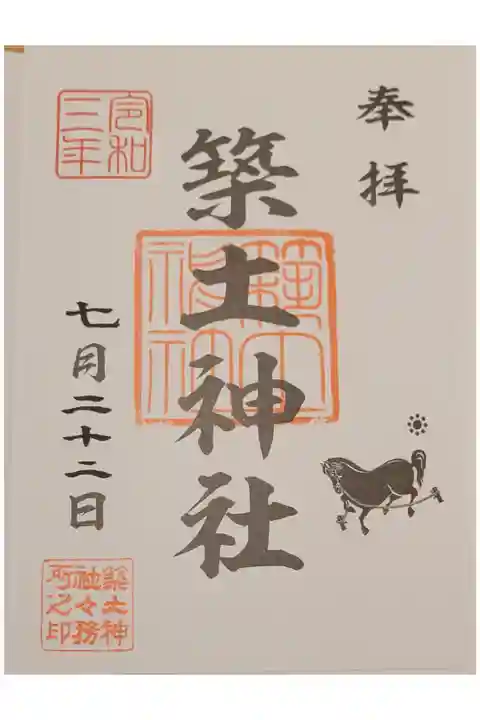 奉拝
築土神社
築土神社
令和三年
七月二十二日
築土神社々務所之印